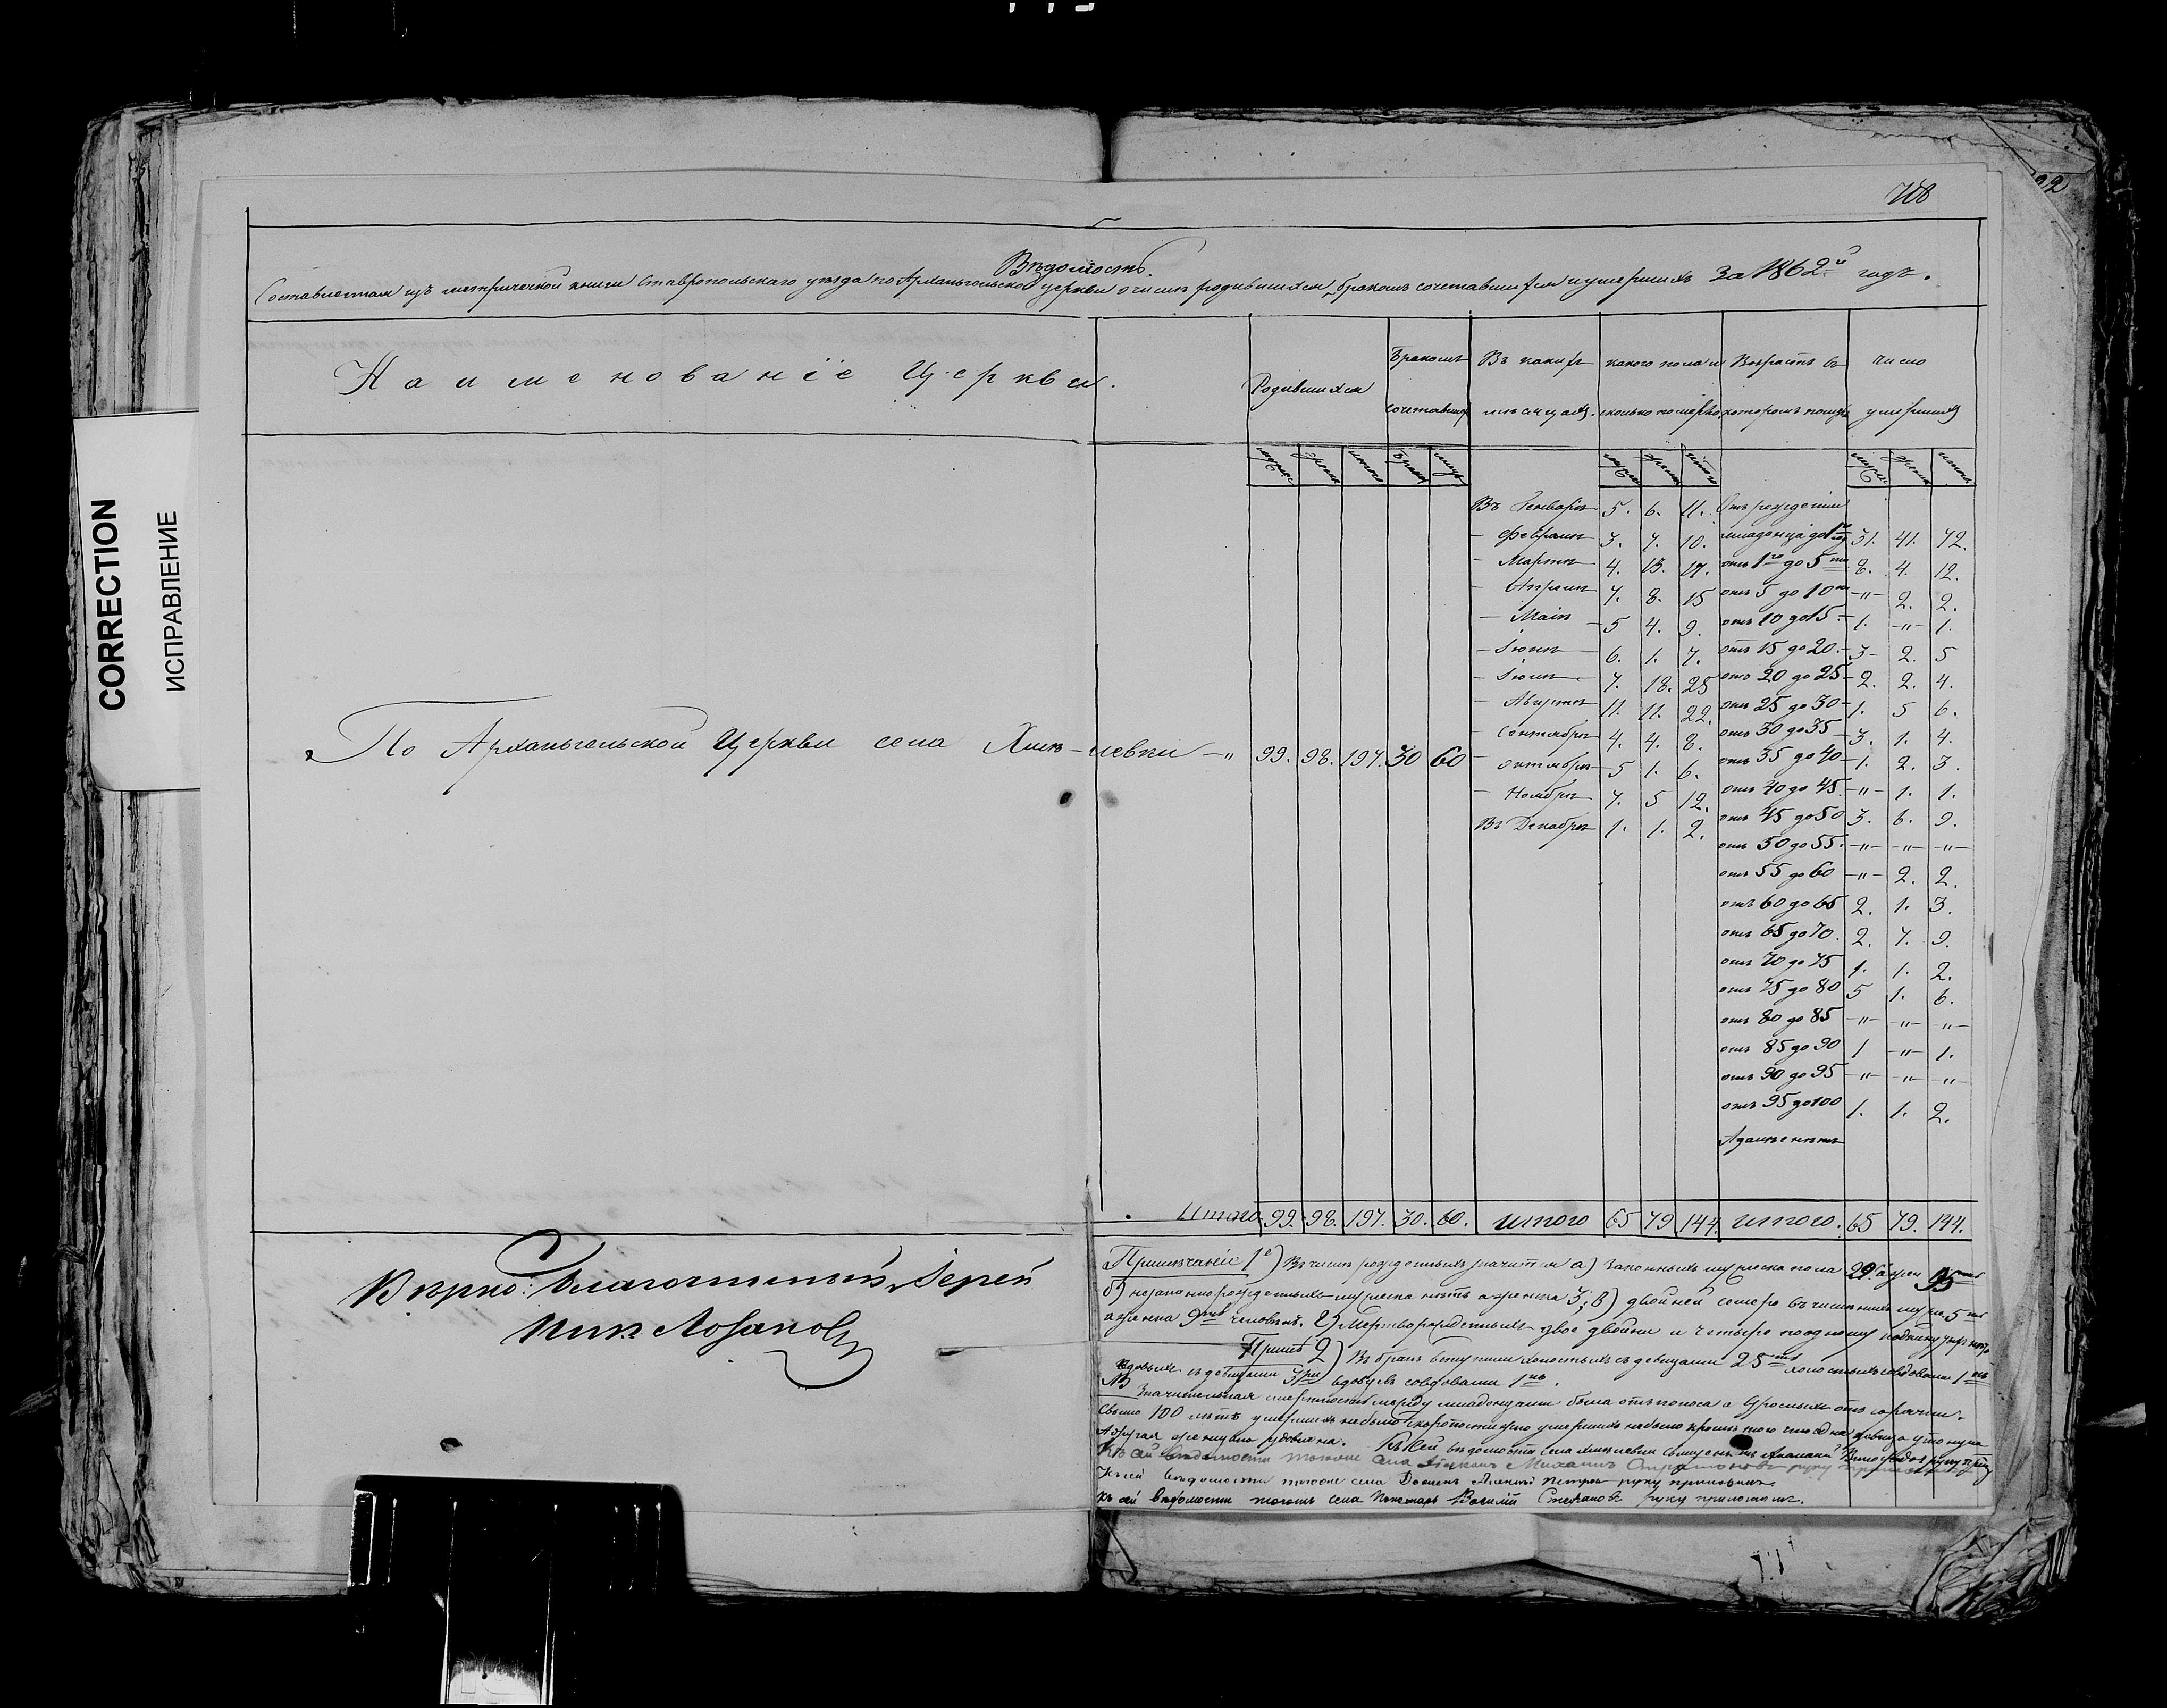 718
CORRECTION
ИСПРАВЛЕНИЕ
Вѣдомость.
Составленная изъ метрической книги Ставропольскаго уѣзда по Архангельской церкви о числѣ родившихся, бракомъ сочетавшихся и умершихъ за 1862й годъ.
Наименованіе Церкви.
Родившихся
Бракомъ сочетавших
Въ какихъ мѣсяцахъ.
какого пола и сколько померло
Возрастъ въ которомъ
число умершихъ
По Архангельской Церкви села Хмѣлевки — " 99. 98. 197. 30 60
Въ Генварѣ 5. 6. 11. Отъ рожденія
— Февралѣ 3. 7. 10. младенца до 1го 31. 41. 72.
— Мартѣ 4. 13. 17. отъ 1го до 5ти 8. 4. 12.
— Апрѣлѣ 7. 8. 15 отъ 5 до 10ти —"— 2. 2.
— Маіѣ 5 4. 9. отъ 10 до 15. 1. —"— 1.
— Іюнѣ 6. 1. 7. отъ 15 до 20. 3 2. 5
— Іюлѣ 7. 18. 25 отъ 20 до 25 2. 2. 4.
— Августѣ 11. 11. 22. отъ 25 до 30 1. 5 6.
— Сентябрѣ 4. 4. 8. отъ 30 до 35 3. 1. 4.
— Октябрѣ 5 1. 6. отъ 35 до 40 1. 2. 3.
— Ноябрѣ 7. 5 12. отъ 40 до 45. —"— 1. 1.
Въ Декабрѣ 1. 1. 2. отъ 45 до 50 3. 6. 9.
отъ 50 до 55. —"— —"— —"—
отъ 55 до 60 —"— 2. 2.
отъ 60 до 65 2. 1. 3.
отъ 65 до 70. 2. 7. 9.
отъ 70 до 75 1. 1. 2.
отъ 75 до 80 5 1. 6.
отъ 80 до 85 —"— —"— —"—
отъ 85 до 90 1 —"— 1.
отъ 90 до 95 —"— —"— —"—
отъ 95 до 100 1. 1. 2.
Итого 99. 98. 197. 30. 60. итого 65 79 144. итого. 65 79. 144.
Вѣрно: Благочинный, Іерей
Примѣчаніе 1е) Въ числѣ рожденныхъ значится а) законныхъ мужеска пола 99. а жен 95
б) незаконнорожденныхъ мужеска нѣтъ а женска 3; в) двойней семеро въ числѣ ихъ муж. 5
а женска 9 человѣкъ. 2) Мертворожденныхъ двое двойни и четыре по одному
Примѣ 2) Въ бракъ вступили холостыхъ съ девицами 25 холостыхъ со вдовами 1
вдовыхъ съ девицами 3 вдовцевъ со вдовами 1.
NB Значительная смертность между младенцами была отъ поноса а взрослыхъ отъ горячки.
Свыше 100 лѣтъ умершихъ не было скоропостижно умершихъ не было кромѣ того что одна девица утонула
А другая
Къ сей вѣдомости тогоже села Діаконъ Михаилъ руку приложилъ
Къ сей вѣдомости тогоже села Дьячекъ Петровъ руку приложилъ.
Къ сей вѣдомости тогожъ села Пономарь Василій Стефановъ руку приложилъ.